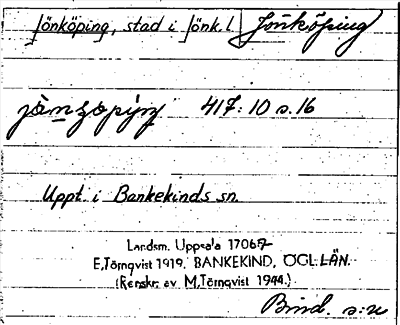 Jönköping, stad i Jönk. l. Jönköping
jànɜøpiŋ 417: 10 s. 16
Uppt. i Bankekinds sn.
Landsm. Uppsala 17067
E, Törnqvist 1919. BANKEKIND, ÖGL. LÄN.
(Renskr. av M, Törnqvist 1944.)